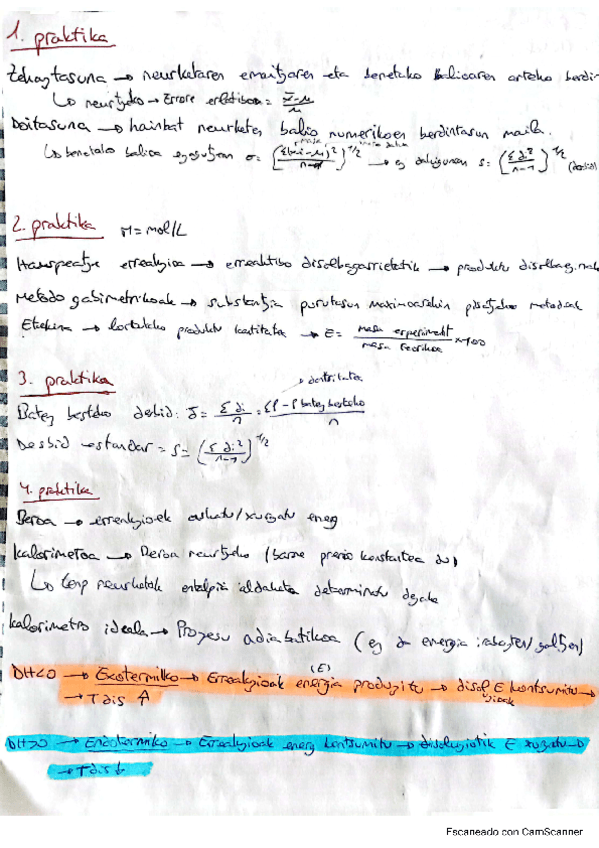 1. praktika
Zehaztasuna → neurketaren emaitzaren eta benetako balioaren arteko berdin
↳ neurtzeko → Errore erlatiboa = x̄-μ/μ
Doitasuna → hainbat neurketen balio numerikoen berdintasun maila.
↳ benetako balioa ezagutzean σ = (Σ(xi-μ)²/n)^1/2 → ez dakigunean s = (Σdi²/n-1)^1/2
2. praktika M = mol/L
Hauspeatze erreakzioa → erreaktibo disolbagarrietatik → produktu disolbag.
Metodo grabimetrikoak → substantzia purutasun maximoarekin pisatzeko metodoak
Etekina → lortutako produktu kantitatea → E = masa experimentl/masa teorikoa x100
3. praktika
→ dentsitatea
Batez besteko desbid: d̄ = Σdi/n = Σ(ρ-ρ batez besteko/n
Desbid estandar = s = (Σdi²/n-1)^1/2
4. praktika
Beroa → erreakzioek askatu/xurgatu energ
Kalorimetroa → Beroa neurtzeko (barne presio konstantea du)
↳ Tenp neurketak entalpia aldaketa determinatu dezake
Kalorimetro ideala → Prozesu adiabatikoa (ez da energia irabazten/galtzen)
DH<0 → Exotermiko → Erreakzioak energia (E) produzitu → disoluzioak E kontsumitu →
→ T dis ↑
DH>0 → Endotermiko → Erreakzioak energ kontsumitu → disoluziotik E xurgatu →
→ T dis ↓
Escaneado con CamScanner